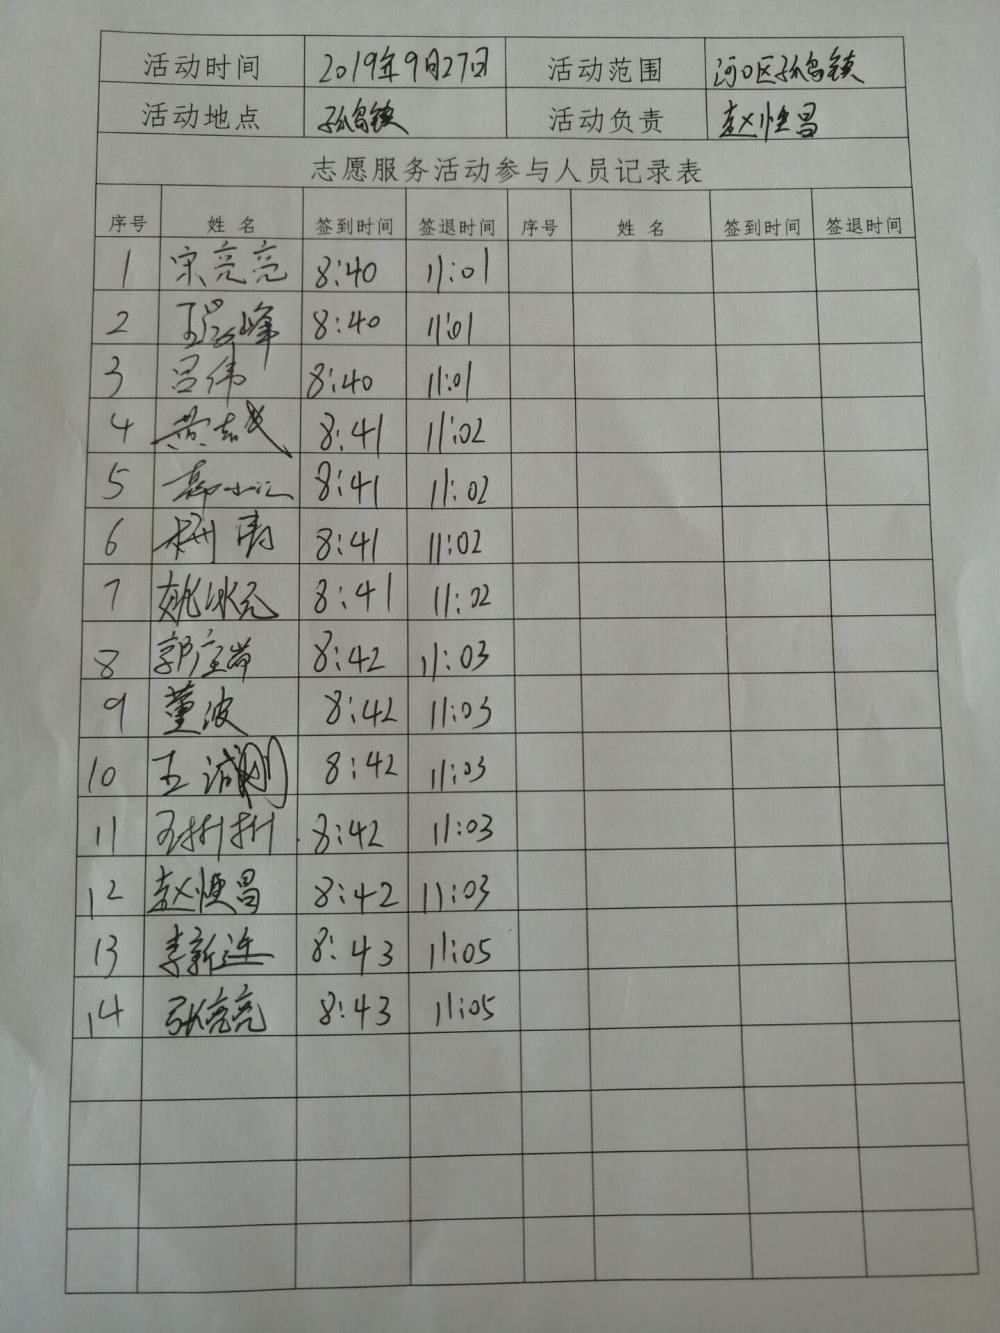 活动时间 2019年9月27日 活动范围 河口区孤岛镇
活动地点 孤岛镇 活动负责 赵恒昌
志愿服务活动参与人员记录表
序号 姓名 签到时间 签退时间 序号 姓名 签到时间 签退时间
1 宋亮亮 8:40 11:01
2 峰 8:40 11:01
3 吕伟 8:40 11:01
4 黄志成 8:41 11:02
5 8:41 11:02
6 8:41 11:02
7 姚冰元 8:41 11:02
8 郭 8:42 11:03
9 董波 8:42 11:03
10 王诚刚 8:42 11:03
11 8:42 11:03
12 赵恒昌 8:42 11:03
13 李新连 8:43 11:05
14 张亮亮 8:43 11:05